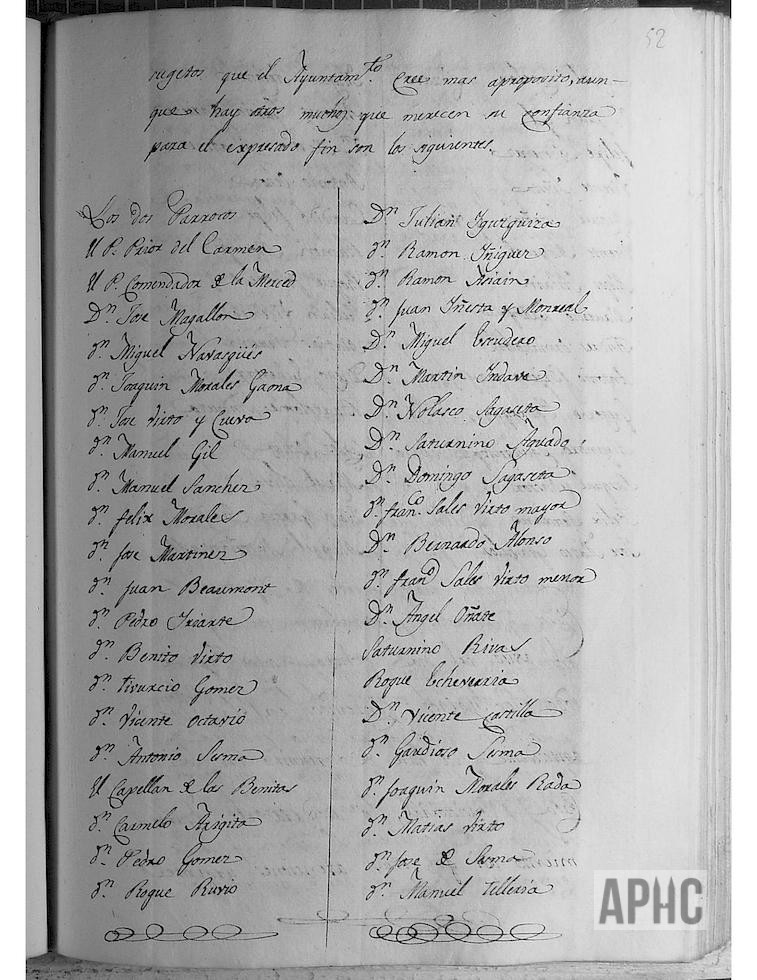 52
sugetos que el Ayuntam.to Cree mas aproposito, aun-
que hay otros muchos que merecen su Confianza
para el expresado fin son los siguientes.
Los dos Parrocos
El P. Prior del Carmen
El P. Comendador de la Merced
Dn Jose Magallon
dn. Miguel Navasgüés
dn. Joaquin Morales Gaona
dn. Jose Virto y Cuero
dn. Manuel Gil
dn. Manuel Sanchez
dn. Felix Morales
dn. Jose Martinez
dn. Juan Beaumont
dn. Pedro Iriarte
dn. Benito Virto
dn. tivurcio Gomez
dn. Vicente Octavio
dn. Antonio Sesma
El Capellan de las Benitas
dn. Carmelo Arigita
dn. Pedro Gomez
dn. Roque Ruvio
Dn Julian Ygurquiza
dn. Ramon Yñiguez
dn. Ramon Asiain
dn. Juan Yñesta y Monreal
Dn. Miguel Escudero
Dn. Martin Indave
Dn. Nolasco Sagaseta
Dn. Saturnino Aguado
Dn. Domingo Sagaseta
dn. franco. Sales Virto mayor
Dn. Bernardo Alonso
dn. franco Sales Virto menor
Dn. Angel Oñate
Saturnino Rivas
Roque Echeverria
Dn. Vicente Castilla
dn. Gaudioso Sesma
dn. Joaquin Morales Rada
dn. Matias Virto
dn. Jose de Sesma
dn. Manuel Telleria
APHC